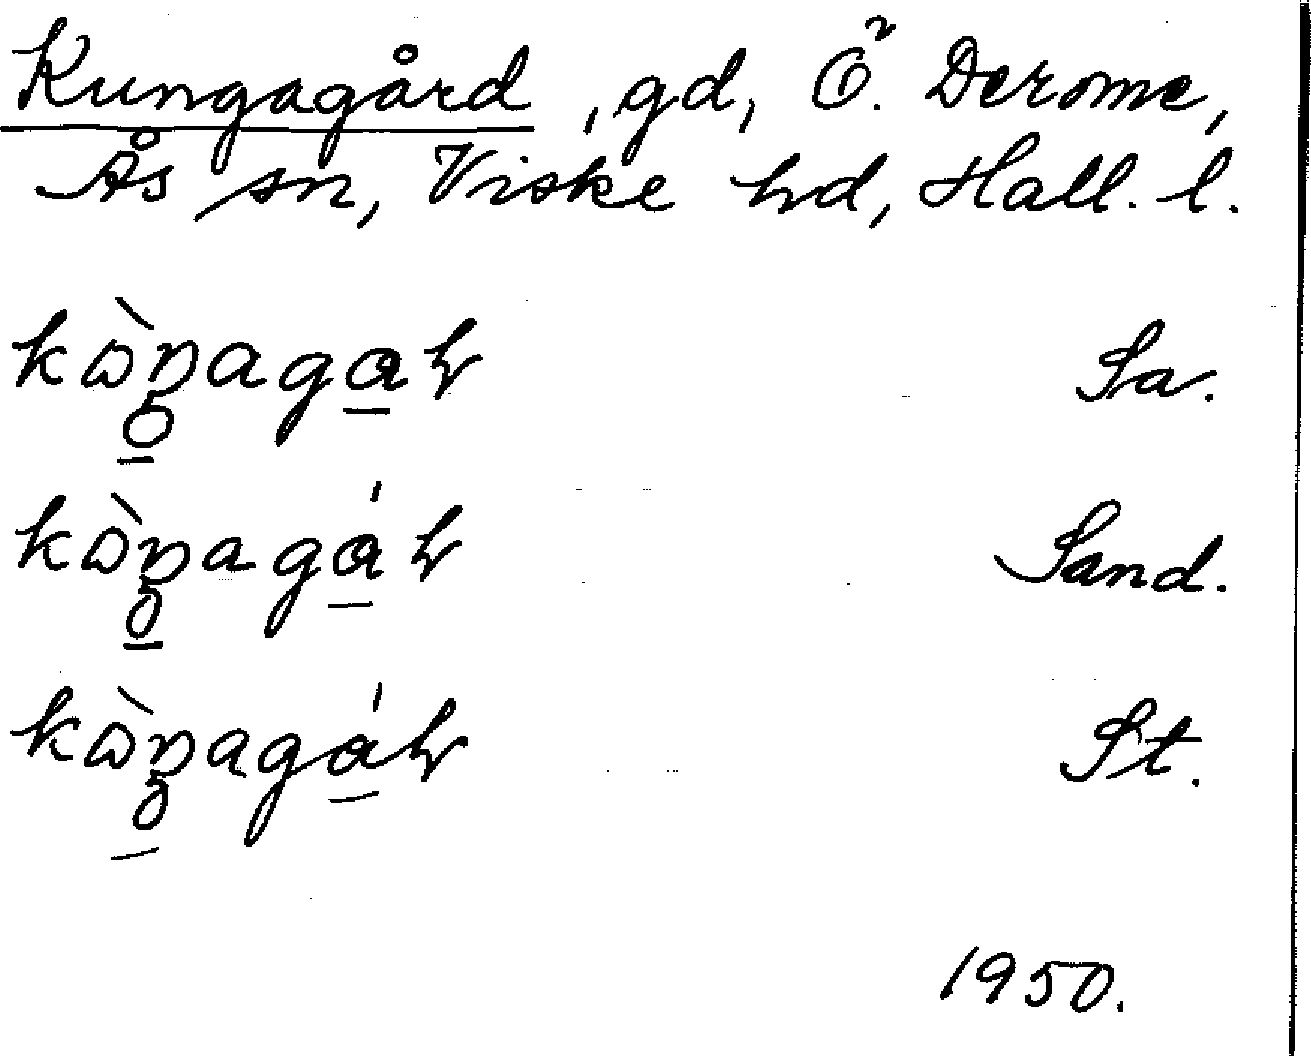 Kungagård, gd, Ö. Derome,
Ås sn, Viske hd, Hall. l.
Sa.
Sand.
St.
1950.